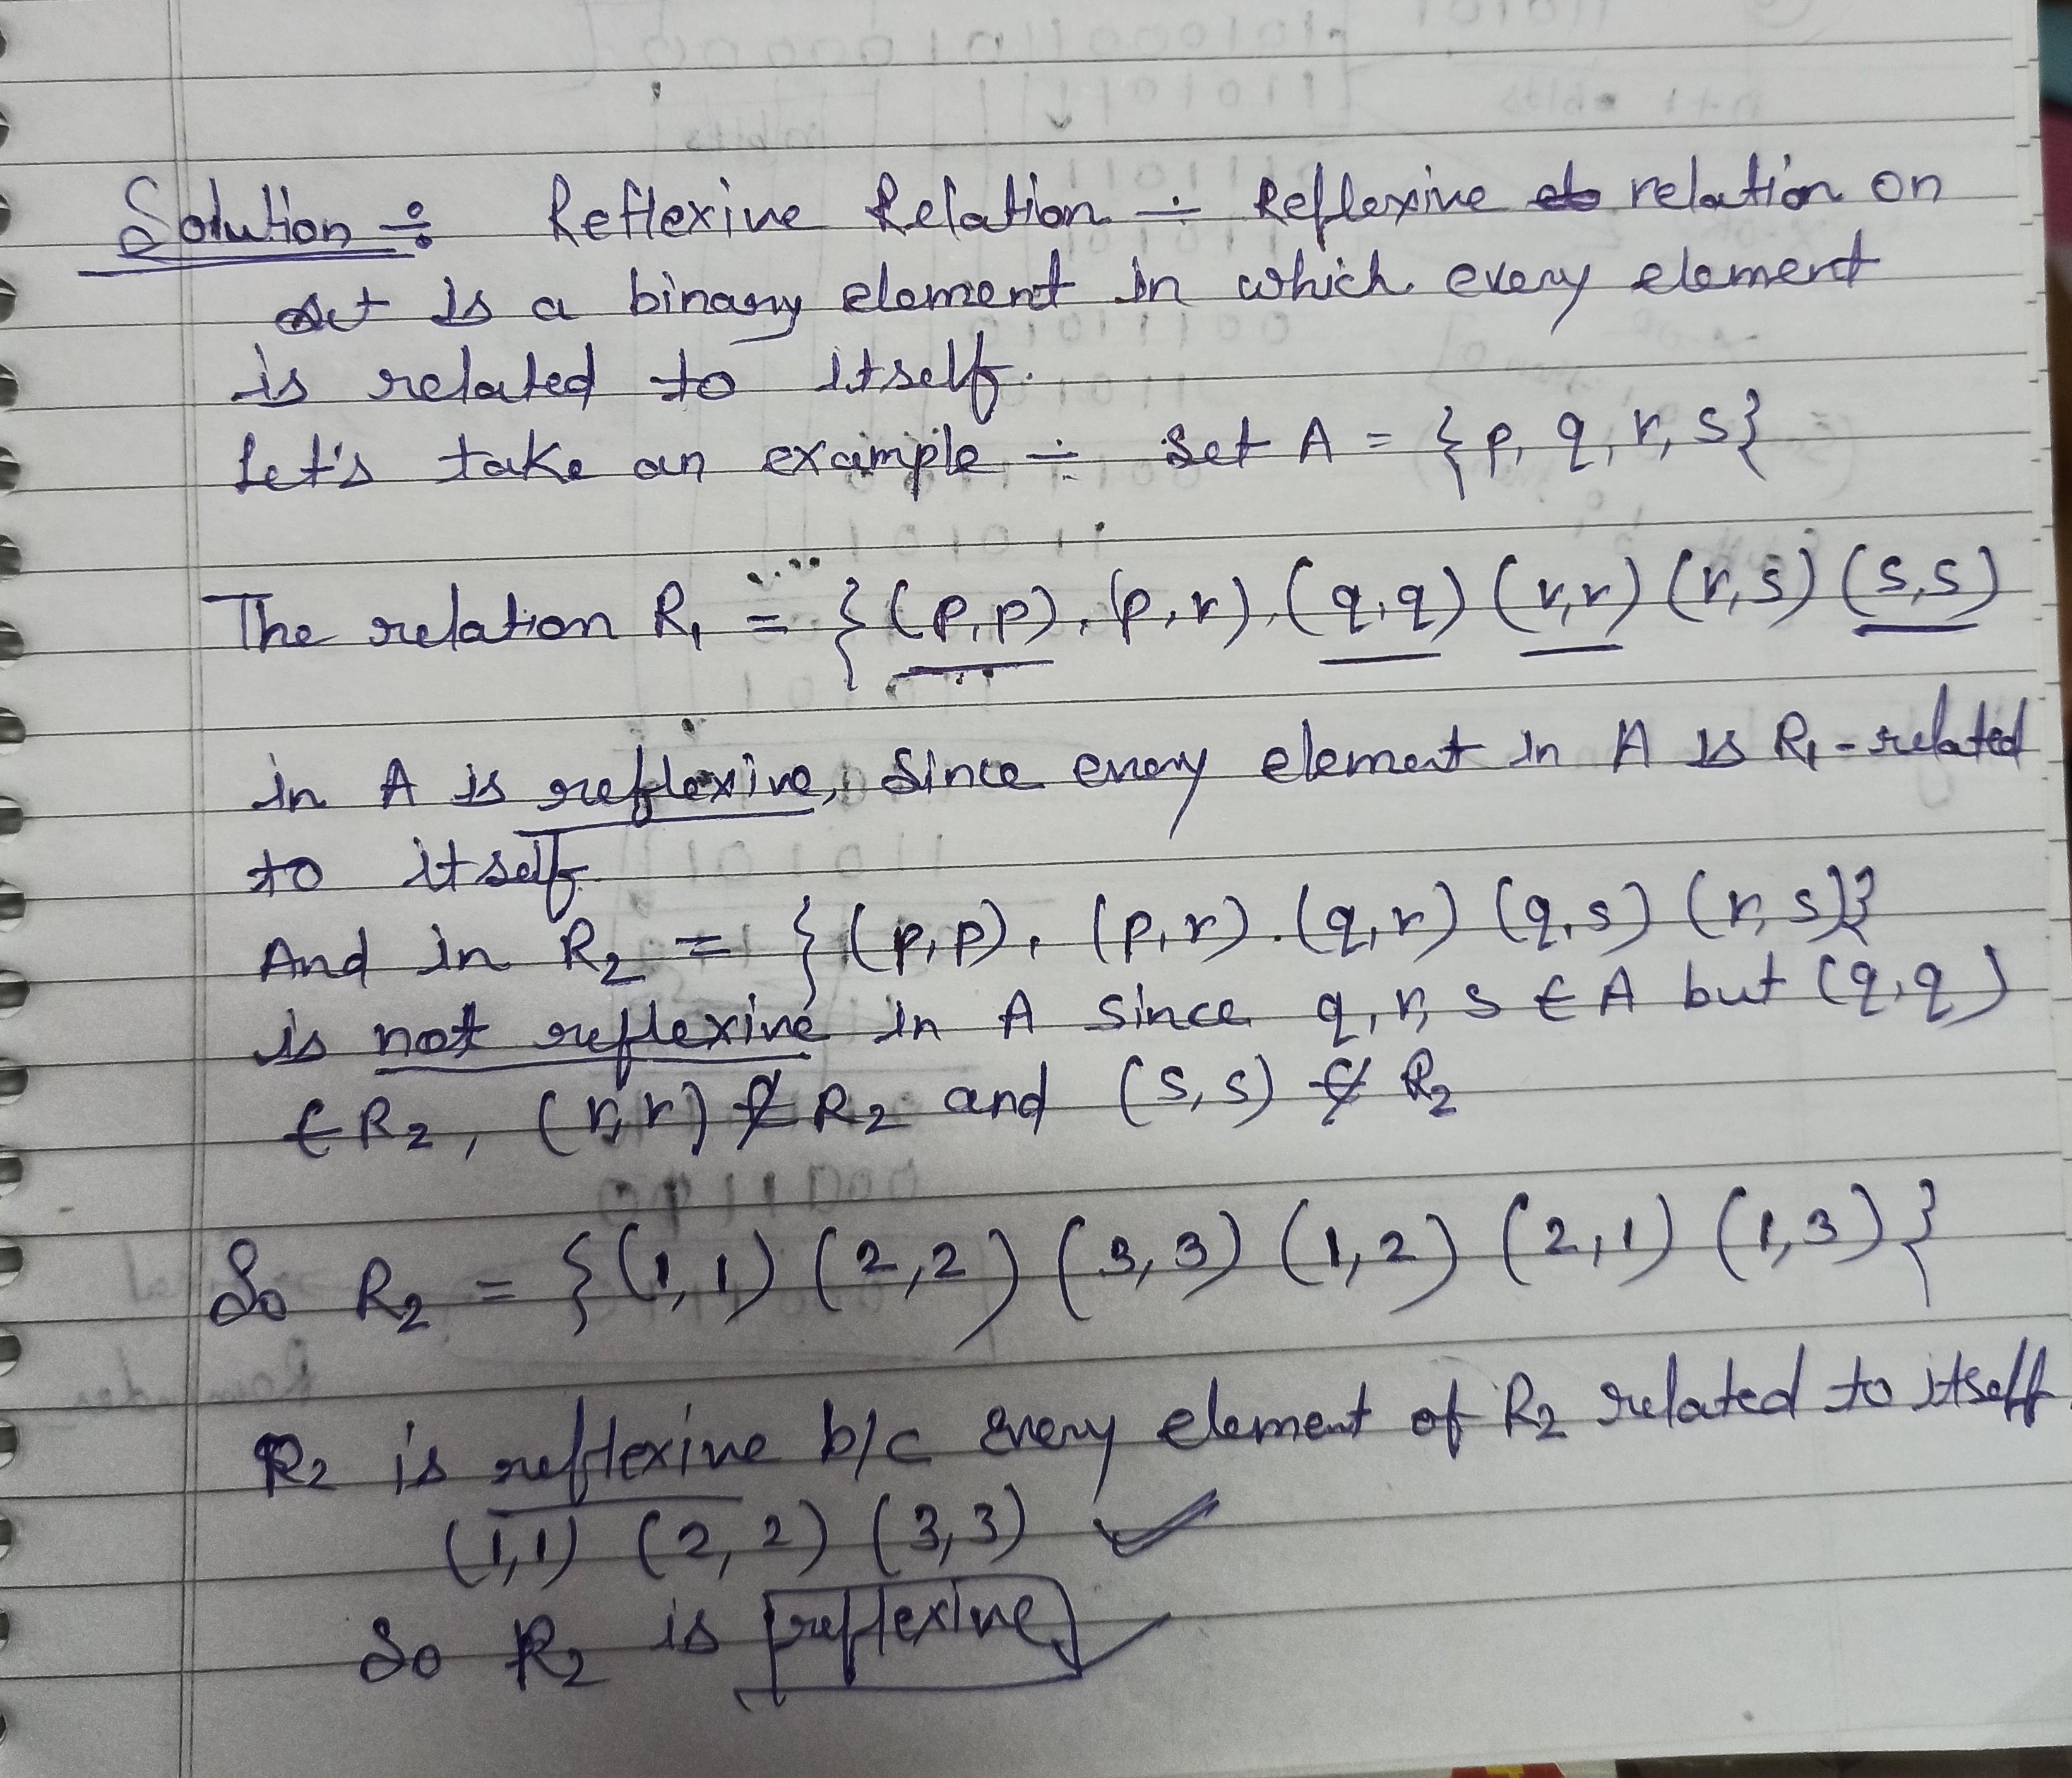 Solution ÷ Reflexive Relation ÷ Reflexive relation on
set is a binary element in which every element
is related to itself.
Let's take an example ÷ Set A = {p, q, r, s}
The relation R₁ = {(p,p), (p,r), (q,q) (r,r) (r,s) (s,s)
in A is reflexive, since every element in A is R₁-related
to itself.
And in R₂ = {(p,p), (p,r). (q,r) (q,s) (r,s)}
is not reflexive in A since q, r, s ∈ A but (q,q)
∈ R₂, (r,r) ∉ R₂ and (s,s) ∉ R₂
So R₂ = {(1,1) (2,2) (3,3) (1,2) (2,1) (1,3)}
R₂ is reflexive b/c every element of R₂ related to itself
(1,1) (2,2) (3,3) ✓
So R₂ is reflexive